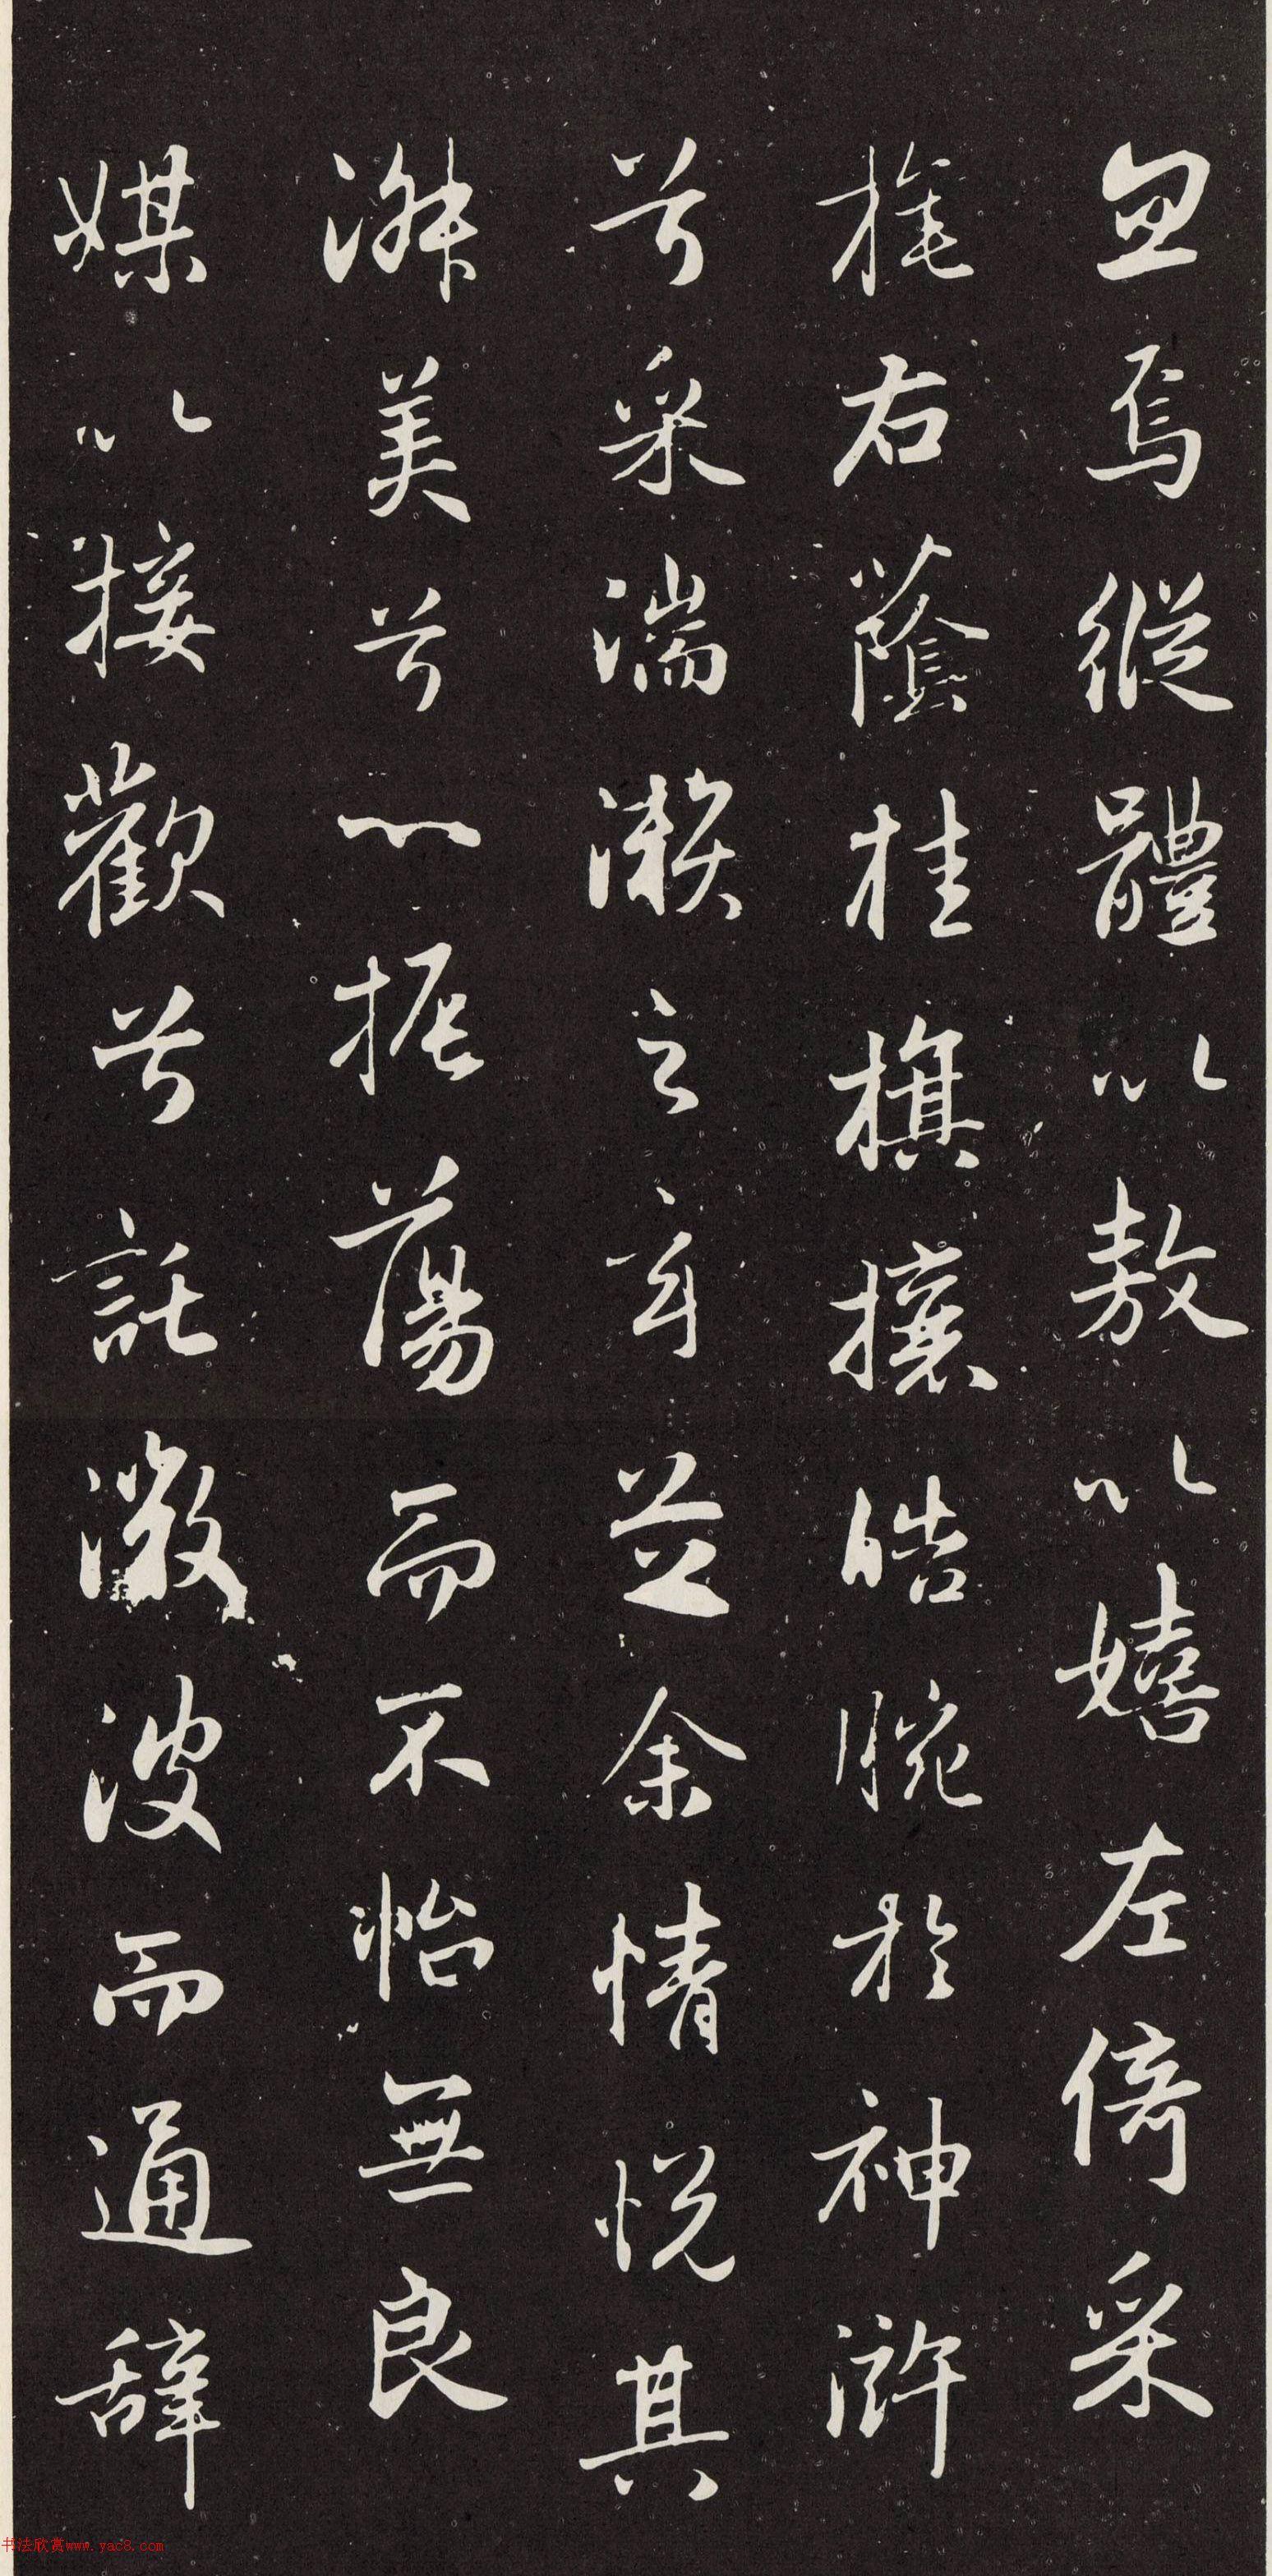 忽焉縱體以敖以嬉左倚采
旄右蔭桂旗攘皓腕於神滸
兮采湍瀨之玄芝余情悅其
淑美兮心振蕩而不怡無良
媒以接歡兮託微波而通辭
书法欣赏www.yac8.com